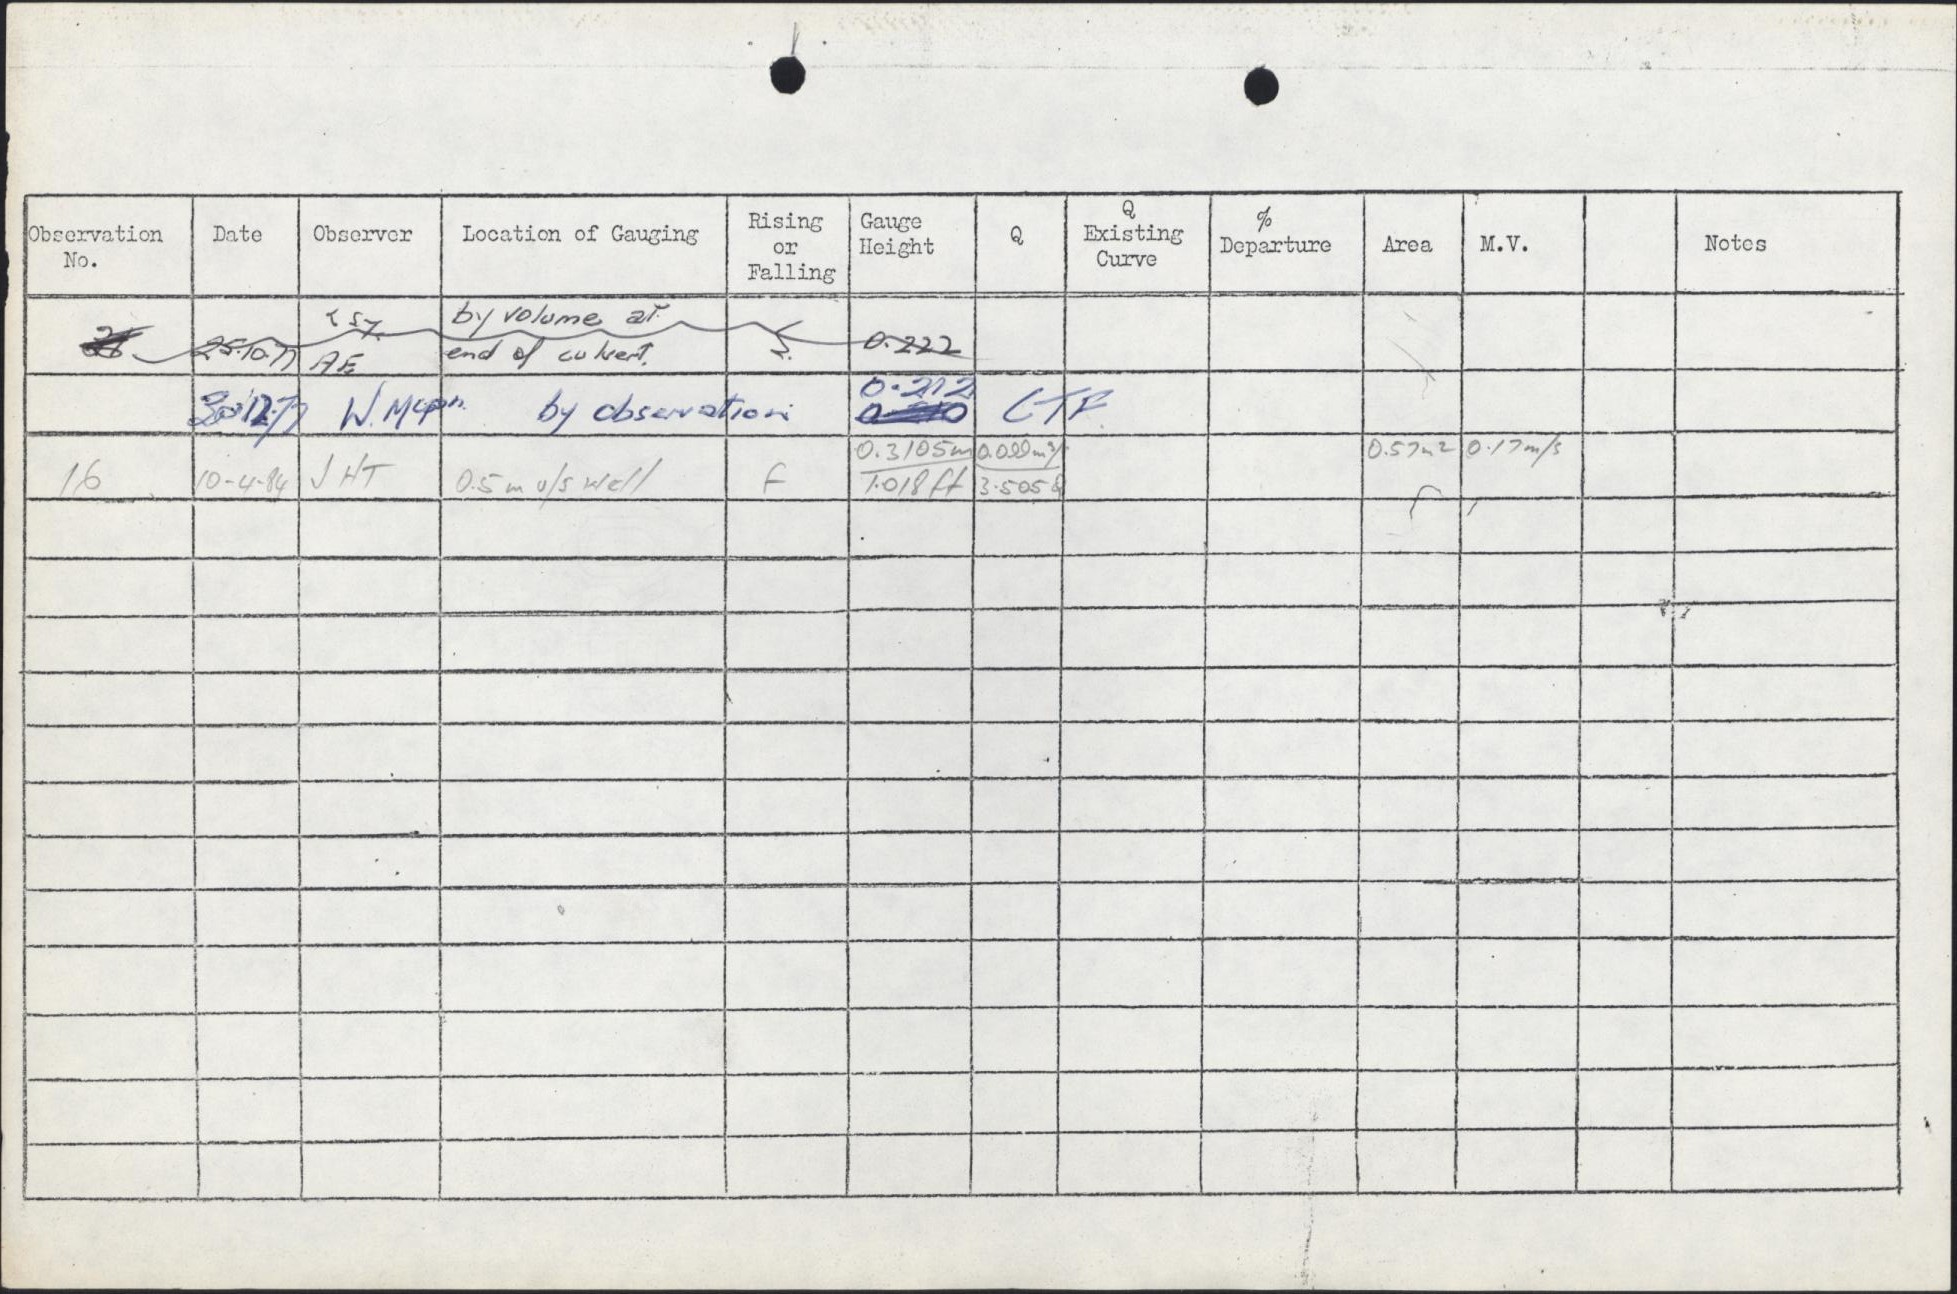 Observation No.
Date
Observer
Location of Gauging
Rising or Falling
Gauge Height
Q
Q Existing Curve
% Departure
Area
M.V.
Notes
25.10.77
AE
by volume at
end of culvert.
0.222
30.12.77
by observation
0.212
CTF
16
10-4-84
JHT
0.5m u/s well
F
0.3105m
1.018 ft
3.505
0.57m2
0.17m/s